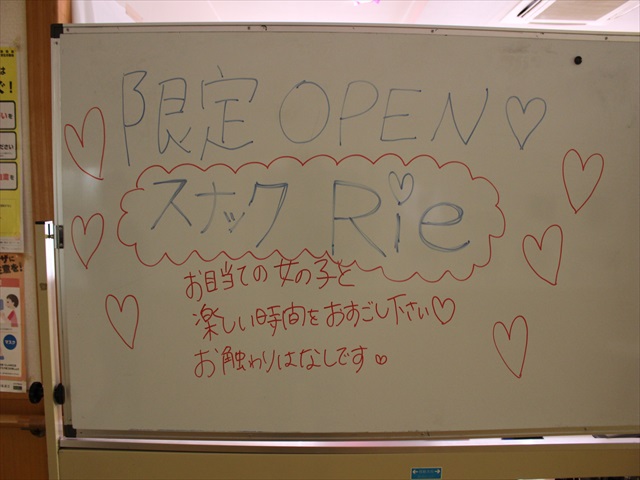 限定 OPEN♡
スナック Rie
お目当ての女の子と
楽しい時間をおすごし下さい♡
お触わりはなしです♡